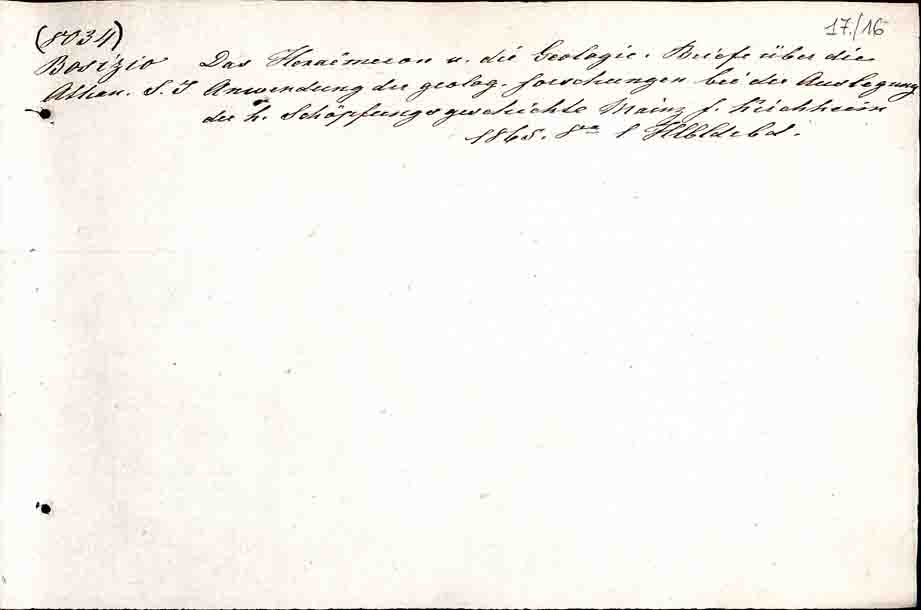 (8034)
17./16
Bosizio Das Hexaëmeron u. die Geologie. Briefe über die
Athan. S. J Anwendung der geolog. Forschungen bei der Auslegung
der h. Schöpfungsgeschichte Mainz f. Kirchheim
1865. 8vo 1 Hlbldrbd.